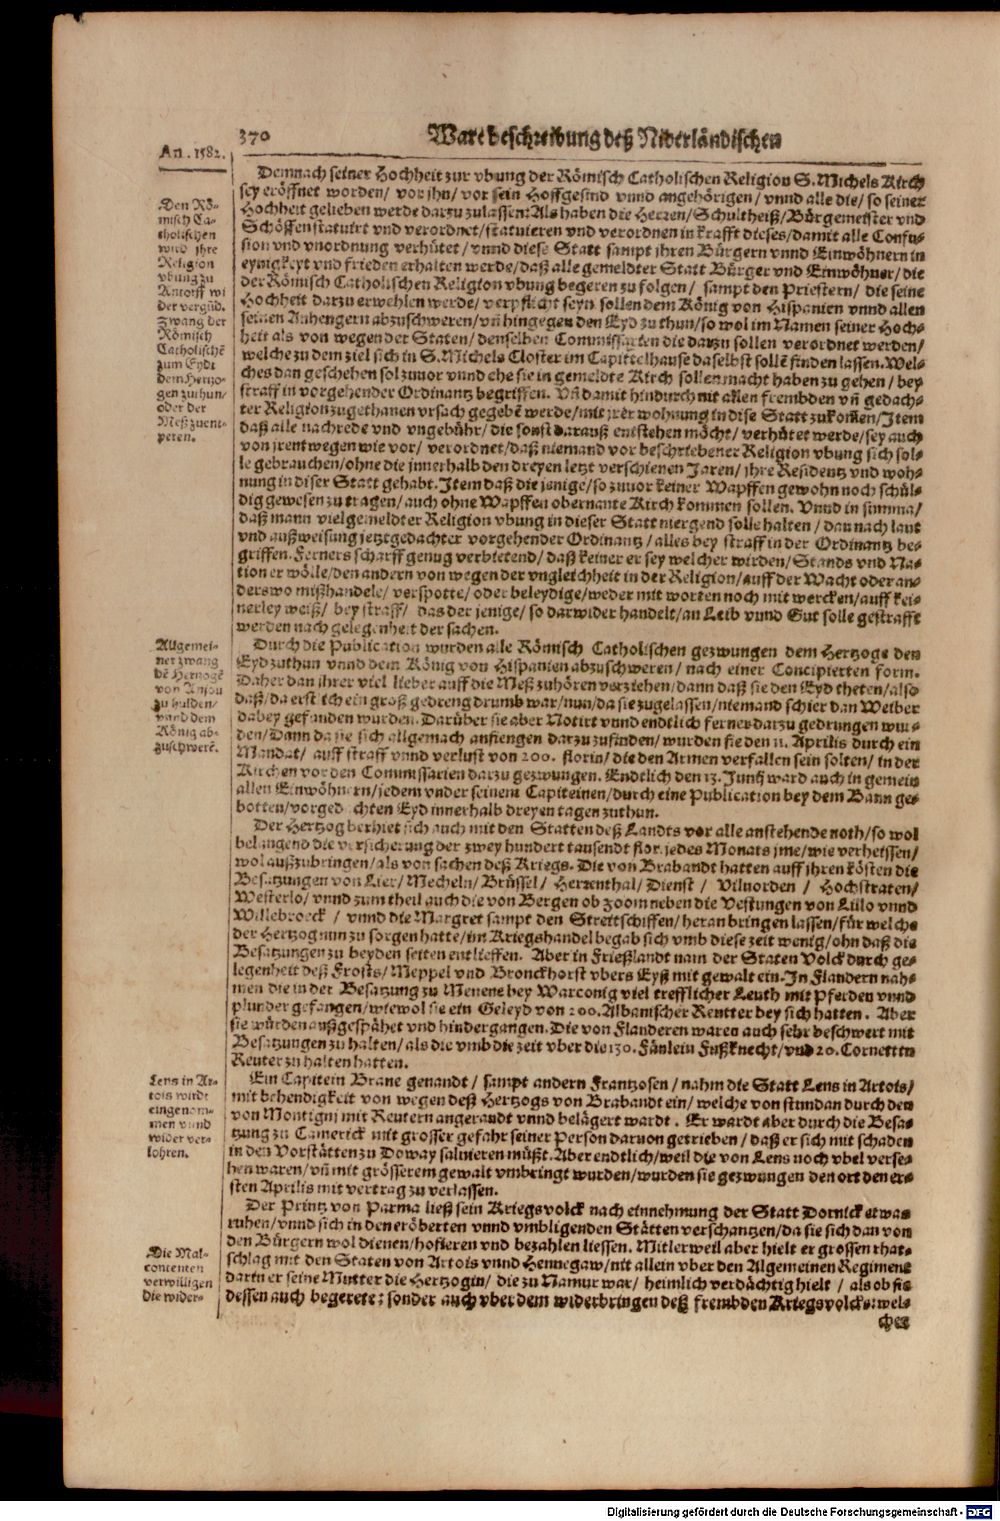 370
Ware beschreibung deß Niderländischen
An. 1582.
Demnach seiner Hochheit zur vbung der Römisch Catholischen Religion S. Michels Kirch
sey eröffnet worden/ vor jhn/ vor sein Hoffgesind vnnd angehörigen/ vnnd alle die/ so seiner
Hochheit gelieben werde darzu zulassen: Als haben die Herren/ Schultheiß/ Bürgemeister vnd
Schöffen statuirt vnd verordnet/ statuieren vnd verordnen in krafft dieses/ damit alle Confu-
sion vnd vnordnung verhütet/ vnnd diese Statt sampt jhren Bürgern vnnd Einwöhnern in
eynigkeyt vnd frieden erhalten werde/ daß alle gemeldter Statt Bürger vnd Einwöhner/ die
der Römisch Catholischen Religion vbung begeren zu folgen/ sampt den Priestern/ die seine
Hochheit darzu erwehlen werde/ verpflicht seyn sollen dem König von Hispanien vnnd allen
seinen Anhengern abzuschweren/ vñ hingegen den Eyd zu thun/ so wol im Namen seiner Hoch-
heit als von wegen der Staten/ denselben Commissarien die darzu sollen verordnet werden/
welche zu dem ziel sich in S. Michels Closter im Capittelhause daselbst sollē finden lassen. Wel-
ches dan geschehen sol zuuor vnnd ehe sie in gemeldte Kirch sollen macht haben zu gehen/ bey
straff in vorgehender Ordinantz begriffen. Vñ damit hindurch nit allen frembden vñ gedach-
ter Religion zugethanen vrsach gegebē werde/ mit jrer wohnung in dise Statt zukom̄en/ Item
daß alle nachrede vnd vngebühr/ die sonst darauß entstehen möcht/ verhütet werde/ sey auch
von jrentwegen wie vor/ verordnet/ daß niemand vor beschriebener Religion vbung sich sol-
le gebrauchen/ ohne die jnnerhalb den dreyen letzt verschienen Jaren/ jhre Residentz vnd woh-
nung in diser Statt gehabt. Item daß die jenige/ so zuuor keiner Wapffen gewohn noch schül-
dig gewesen zu tragen/ auch ohne Wapffen obernante Kirch kommen sollen. Vnnd in summa/
daß mann vielgemeldter Religion vbung in dieser Statt niergend solle halten/ dan nach laut
vnd außweisung jetztgedachter vorgehender Ordinantz/ alles bey straff in der Ordinantz be-
griffen. Ferners scharff genug verbietend/ daß keiner er sey welcher wirden/ Stands vnd Na-
tion er wölle/ den andern von wegen der vngleichheit in der Religion/ auff der Wacht oder an-
derswo mißhandele/ verspotte/ oder beleydige/ weder mit worten noch mit wercken/ auff kei-
nerley weiß/ bey straff/ das der jenige/ so darwider handelt/ an Leib vnnd Gut solle gestrafft
werden nach gelegenheit der sachen.
Den Rö-
misch Ca-
tholischen
wird jhre
Religion
vbung zu
Antorff wi
der vergüd.
Zwang der
Römisch
Catholischē
zum Eydt
dem Hertzo-
gen zuthun/
oder der
Meß zuent-
peren.
Durch die Publication wurden alle Römisch Catholischen gezwungen dem Hertzoge den
Eyd zuthun vnnd dem König von Hispanien abzuschweren/ nach einer Concipierten form.
Daher dan jhrer viel lieber auff die Meß zuhören verziehen/ dann daß sie den Eyd theten/ also
daß/ da erstlich ein groß gedreng drumb war/ nun/ da sie zugelassen/ niemand schier dan Weiber
dabey gefunden wurden. Darüber sie aber Notirt vnnd endtlich ferner darzu gedrungen wur-
den/ Dann da sie sich allgemach anfiengen darzu zufinden/ wurden sie den 11. Aprilis durch ein
Mandat/ auff straff vnnd verlust von 200. florin/ die den Armen verfallen sein solten/ in der
Kirchen vor den Commissarien darzu gezwungen. Endtlich den 13. Junij ward auch in gemein
allen Einwöhnern/ jedem vnder seinem Capiteinen/ durch eine Publication bey dem Bann ge-
botten/ vorgedachten Eyd innerhalb dreyen tagen zuthun.
Allgemei-
ner zwang
dē Hertzogē
von Anjou
zu hulden/
vnnd dem
König ab-
zuschwerē.
Der Hertzog berhiet sich auch mit den Statten deß Landts vor alle anstehende noth/ so wol
belangend die versicherung der zwey hundert tausendt flor. jedes Monats jme/ wie verheissen/
wol außzubringen/ als von sachen deß Kriegs. Die von Brabandt hatten auff jhren kösten die
Besatzungen von Lier/ Mecheln/ Brüssel/ Herrenthal/ Dienst/ Viluorden/ Hochstraten/
Westerlo/ vnnd zum theil auch die von Bergen ob zoom neben die Vestungen von Lillo vnnd
Willebroeck/ vnnd die Margret sampt den Streitschiffen/ heran bringen lassen/ für welche
der Hertzog nun zu sorgen hatte/ im Kriegshandel begab sich vmb diese zeit wenig/ ohn daß die
Besatzungen zu beyden seiten entlieffen. Aber in Frießlandt nam der Staten Volck durch ge-
legenheit deß Frosts/ Meppel vnd Bronckhorst vbers Eyß mit gewalt ein. In Flandern nah-
men die in der Besatzung zu Menene bey Warconig viel trefflicher Leuth mit Pferden vnnd
plunder gefangen/ wiewol sie ein Geleyd von 200. Albanischer Reutter bey sich hatten. Aber
sie würden außgespähet vnd hindergangen. Die von Flanderen waren auch sehr beschwert mit
Besatzungen zu halten/ als die vmb die zeit vber die 130. Fänlein Fußknecht/ vnd 20. Cornettin
Reuter zu halten hatten.
Ein Capitein Brane genandt/ sampt andern Frantzosen/ nahm die Statt Lens in Artois/
mit behendigkeit von wegen deß Hertzogs von Brabandt ein/ welche von stundan durch den
von Montigni mit Reutern angerandt vnnd belägert wardt. Er wardt aber durch die Besa-
tzung zu Camerick mit grosser gefahr seiner Person daruon getrieben/ daß er sich mit schaden
in den Vorstätten zu Doway saluieren müßt. Aber endtlich/ weil die von Lens noch vbel verse-
hen waren/ vñ mit grösserem gewalt vmbringt wurden/ wurden sie gezwungen den ort den er-
sten Aprilis mit vertrag zu verlassen.
Lens in Ar-
tois wirdt
eingenom-
men vnnd
wider ver-
lohren.
Der Printz von Parma ließ sein Kriegsvolck nach einnehmung der Statt Dornick etwas
ruhen/ vnnd sich in den eröberten vnnd vmbligenden Stätten verschantzen/ da sie sich dan von
den Bürgern wol dienen/ hofieren vnd bezahlen liessen. Mitlerweil aber hielt er grossen rhat-
schlag mit den Staten von Artois vnnd Hennegaw/ nit allein vber den Algemeinen Regiment
darin er seine Mutter die Hertzogin/ die zu Namur war/ heimlich verdächtig hielt/ als ob sie
dessen auch begerete: sonder auch vber dem widerbringen deß frembden Kriegsvolcks: wel-
cher
Die Mal-
contenten
verwilligen
die wider-
Digitalisierung gefördert durch die Deutsche Forschungsgemeinschaft - DFG